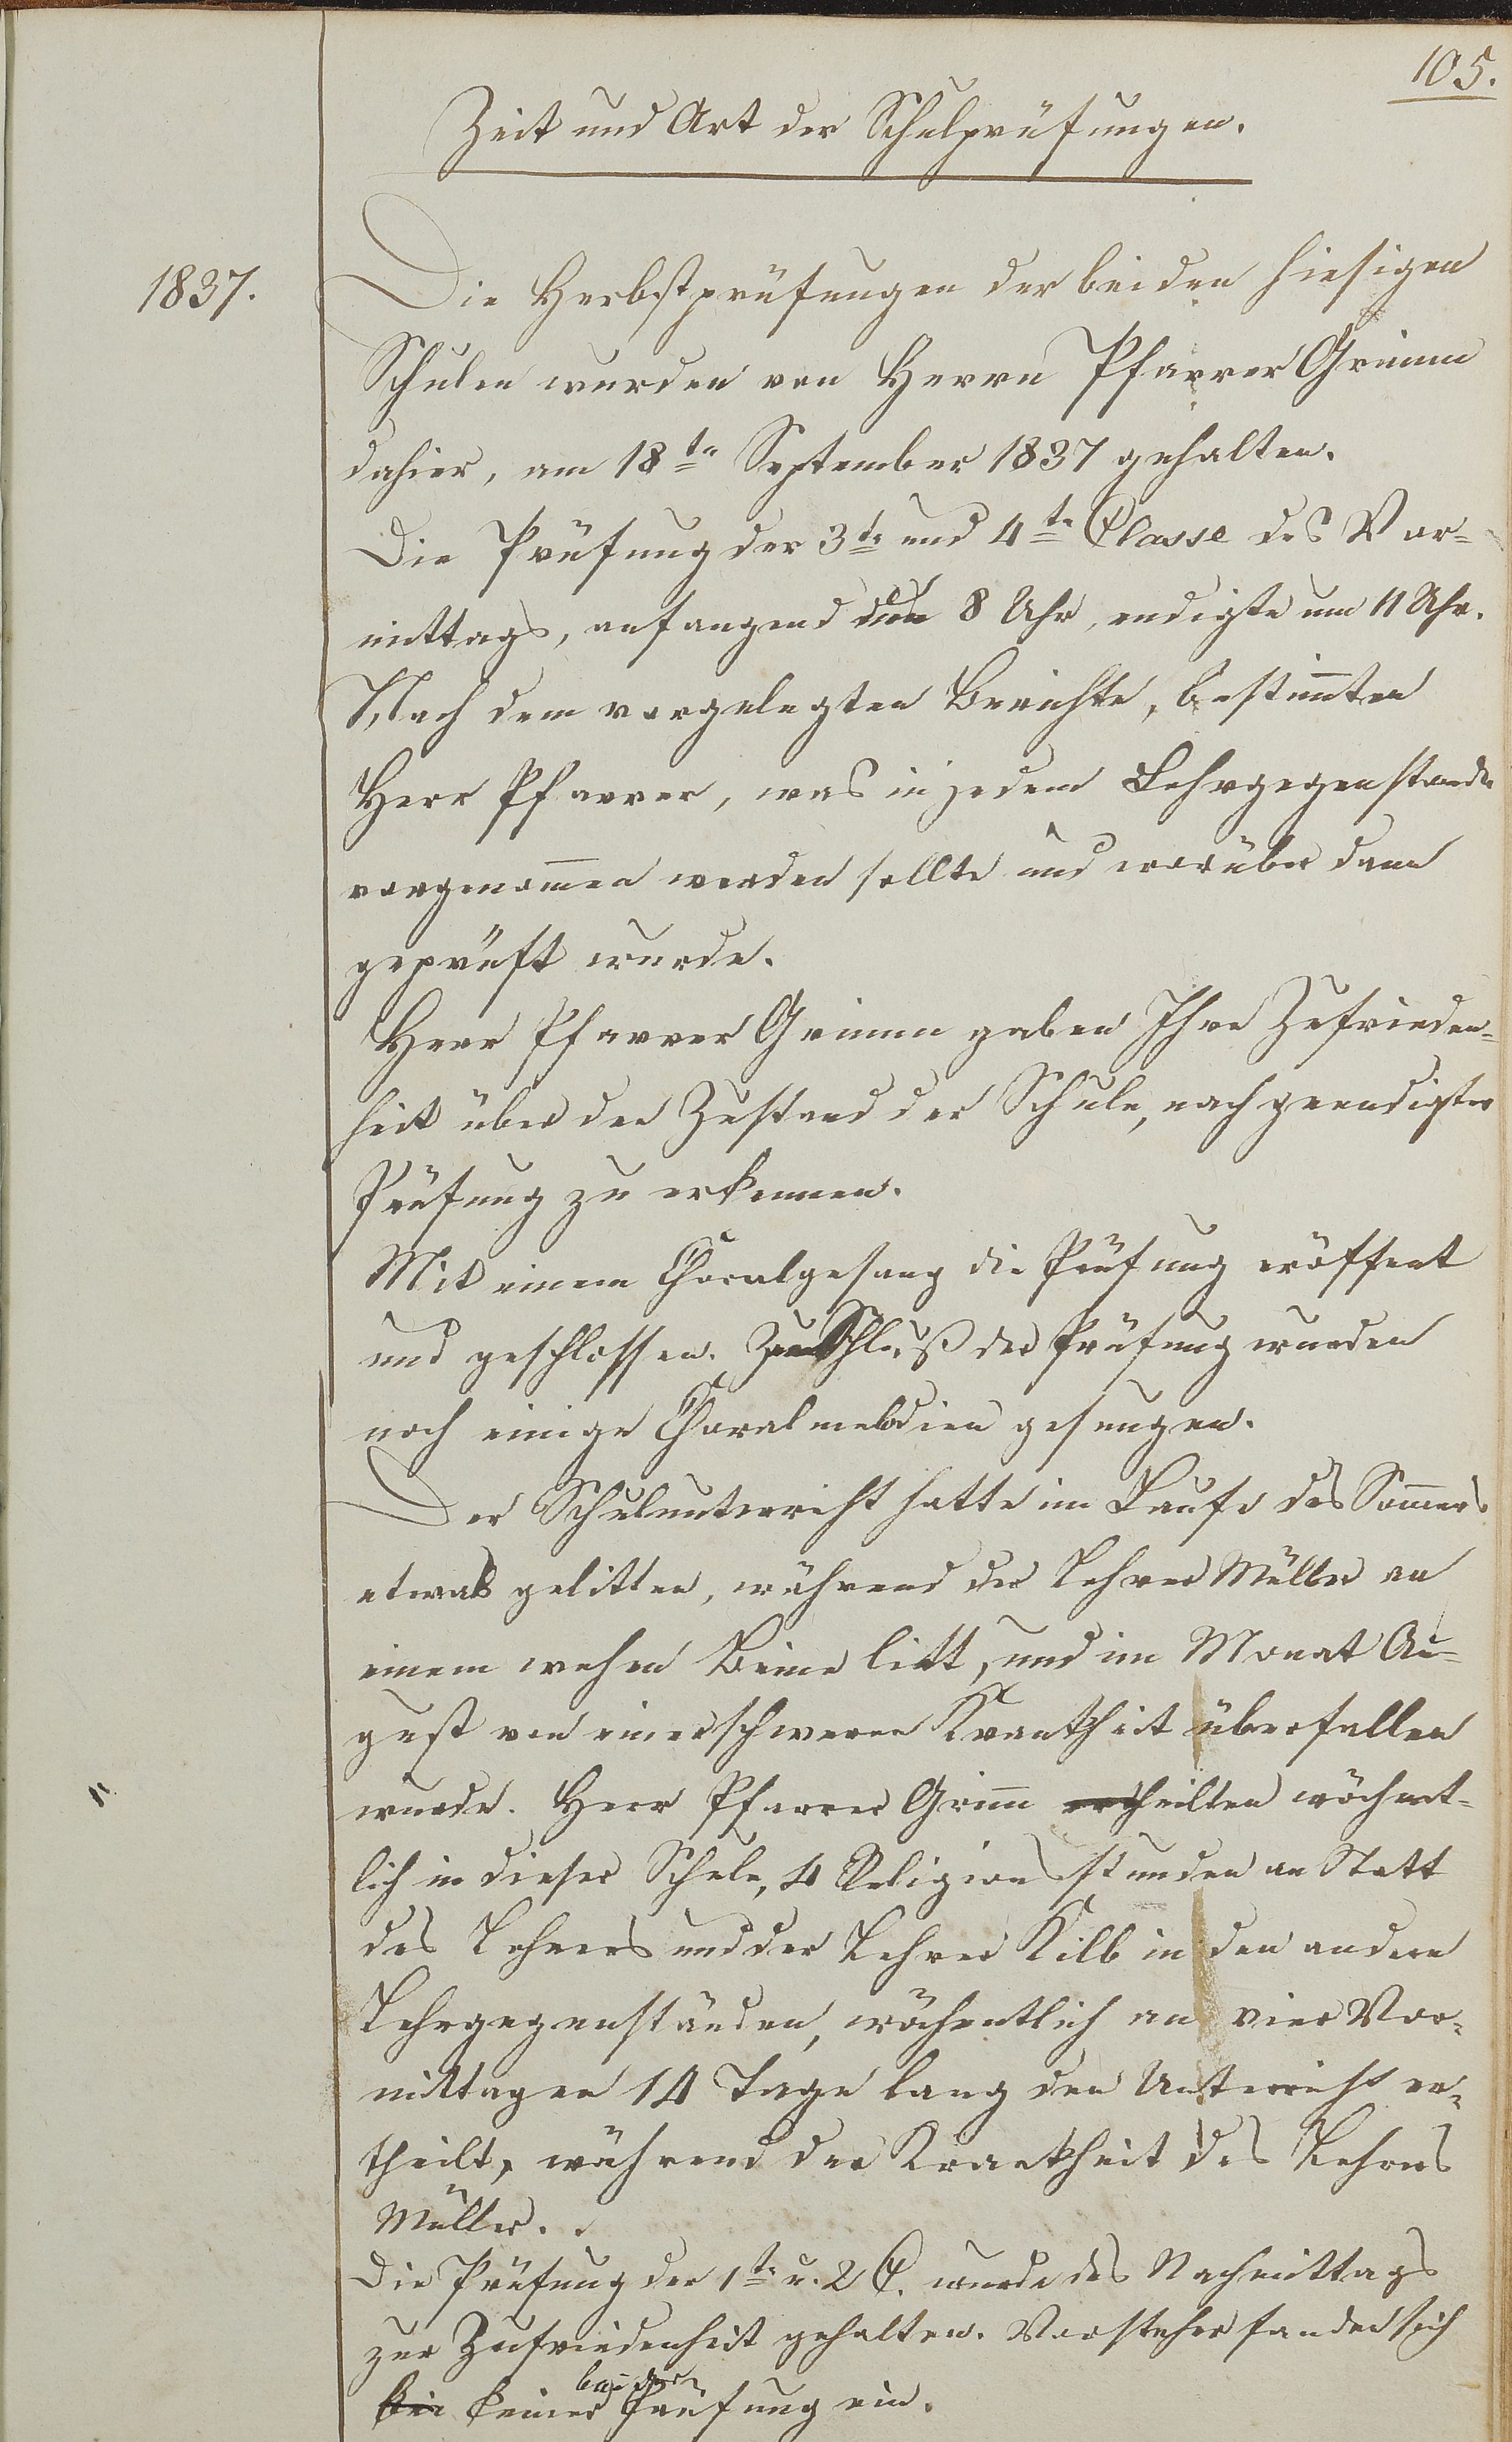 105.
Zeit und Art der Schulprüfungen.
1837.
Die Herbstprüfungen der beiden hiesigen
Schulen wurden von Herrn Pfarrer Grimm
dahier, am 18te September 1837 gehalten.
Die Prüfung der 3te und 4te Classe des Vor=
mittags, anfangend 8 Uhr, endigte um 11 Uhr.
Nach dem vorgelegten Berichte, bestimten
Herr Pfarrer, was in jedem Lehrgegenstande
vorgenomen werden sollte und worüber dann
geprüft wurde.
Herr Pfarrer Grimm gaben Ihre Zufrieden=
heit über den Zustand der Schule, nach geendigter
Prüfung zu erkennen.
Mit einem Choralgesang die Prüfung eröffnet
und geschlossen. Zum Schluß der Prüfung wurden
noch einige Choralmelodien gesungen.
Der Schulunterricht hatte im Laufe des Somers
etwas gelitten, während der Lehrer Müller an
einem wehen Beine litt, und im Monat Au=
gust von einer schweren Krankheit überfallen
wurde. Herr Pfarrer Grim ertheilten wöchent=
lich in dieser Schule, 4 Religionsstunden an Statt
des Lehrers und der Lehrer Kilb in den andern
Lehrgegenständen, wöchentlich an vier Vor=
mittagen 14 Tage lang den Unterricht er=
theilt, während der Krankheit des Lehrers
Müller.
Die Prüfung der 1te u. 2 C. wurde des Nachmittags
zur Zufriedenheit gehalten. Vorsteher fanden sich
bei keiner beider Prüfung ein.